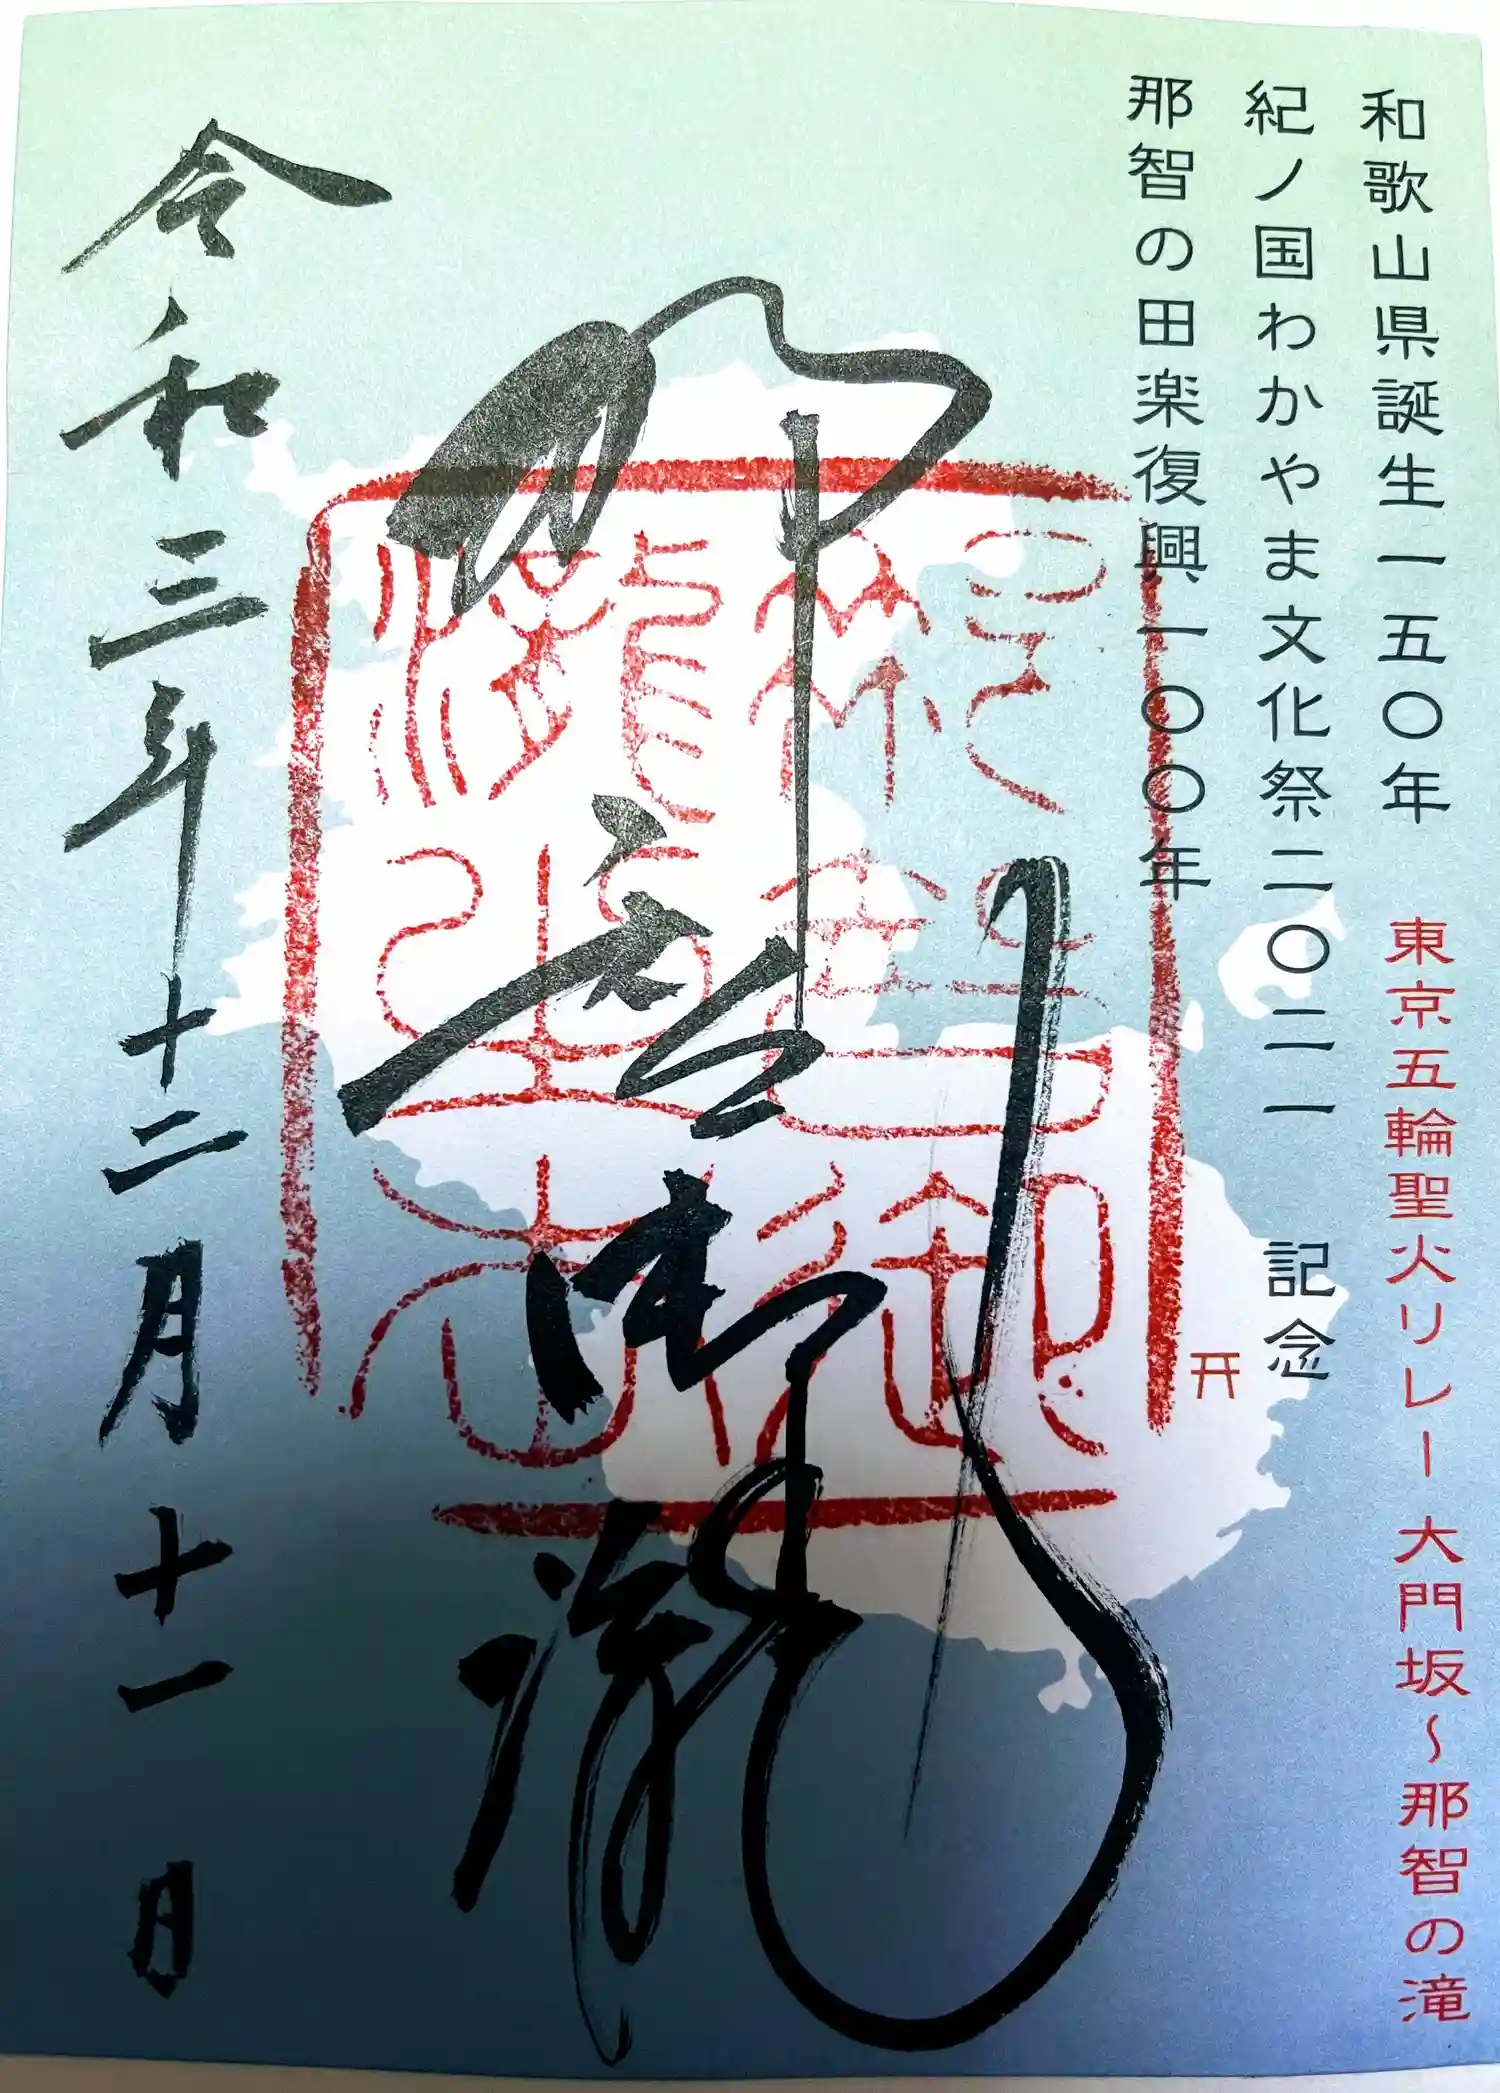 和歌山県誕生一五〇年　東京五輪聖火リレー 大門坂～那智の滝
紀ノ国わかやま文化祭二〇二一　記念
那智の田楽復興一〇〇年
那智御瀧
令和三年十二月十一日